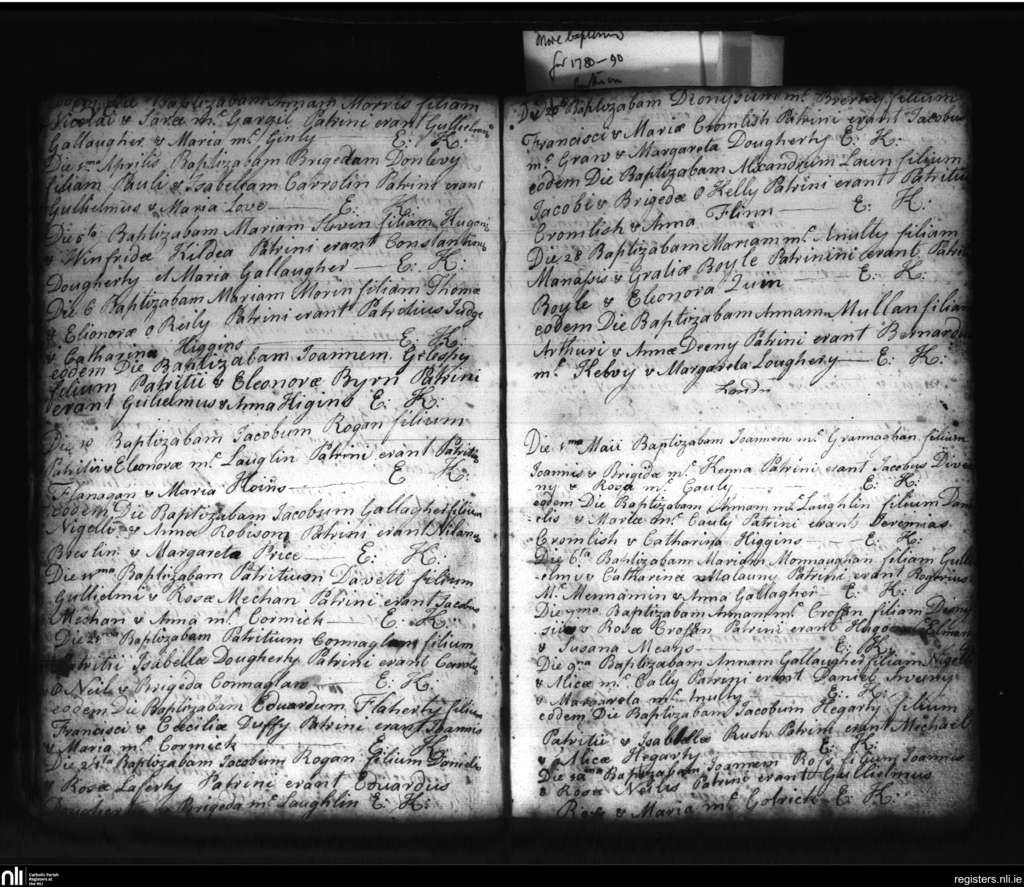 More baptisms
for 1780-90
Baptizabam Annam Morris filiam
Nicolai & Saræ mc Gargil Patrini erant Gullielmus
Gallaugher & Maria mc Ginly E: K:
Die 5ma Aprilis Baptizabam Brigedam Donlevy
filiam Pauli & Isabellam Carrolin Patrini erant
Gullielmus & Maria Love E: K:
Die 6ta Baptizabam Mariam filiam Hugonis
& Winifridæ Kildea Patrini erant Constantinus
Dougherty et Maria Gallaugher E: K:
Die 6 Baptizabam Mariam Morin filiam Thomæ
& Elionoræ O Reily Patrini erant Patritius Judge
& Catharina Higgins E: K:
eodem Die Baptizabam Joannem Gelespy
filium Patritii & Eleonoræ Byrn Patrini
erant Gulielmus & Anna Higins E: K:
Die 10 Baptizabam Jacobum Rogan filium
Patritii & Eleonoræ mc Lauglin Patrini erant Patritius
Flanagan & Maria E K:
eodem Die Baptizabam Jacobum Gallagher filium
Nigelli & Annæ Robison Patrini erant
Breslin & Margareta Price E: K:
Die 11ma Baptizabam Patritium Davett filium
Gullielmi & Rosæ Mechan Patrini erant Jacobus
Mechan & Anna mc Cormick E: K:
Die Baptizabam Patritium Connaglan filium
Patritii Isabellæ Dougherty Patrini erant Carolus
O Neil & Brigeda Connaglan E: K:
eodem Die Baptizabam Eduardum Flaherty filium
Francisci & Cæciliæ Duffy Patrini erant Joannis
& Maria mc Cormick E: K:
Die 24ta Baptizabam Jacobum Rogan filium Danielis
& Rosæ Laferty Patrini erant Eduardus
& Brigeda mc Laughlin E: K:
Die 26 Baptizabam Dionysium mc Brerty filium
Francisci & Mariæ Cromlish Patrini erant Jacobus
mc Graw & Margareta Dougherty E: K:
eodem Die Baptizabam Alexandrum Laun filium
Jacobi & Brigedæ O Kelly Patrini erant Patritius
Cromlish & Anna Flinn E: K:
Die 28 Baptizabam Mariam mc Anulty filiam
Manasis & Gratiæ Boyle Patrinini erant Patrit
Boyle & Eleonora Quin E: K:
eodem Die Baptizabam Annam Mullan filiam
Arthuri & Annæ Deeny Patrini erant Bernardus
mc Kelvy & Margareta Loughery E: K:
Die 1ma Maii Baptizabam Joannem mc Grannaghan filium
Joannis & Brigidæ mc Kenna Patrini erant Jacobus Dive
ny & Rosa mc Gauly E: K:
eodem Die Baptizabam Annam mc Laughlin filium Dani
elis & Mariæ mc Cauly Patrini erant Jeremias
Cromlish & Catharina Higgins E: K:
Die 6ta Baptizabam Mariam Monnaughan filiam Gulli
elmi & Catharinæ Patrini erant Rogerius
Mc Mennamin & Anna Gallagher E: K:
Die 7ma Baptizabam Annam mc Crossan filiam Diony
sii & Rosæ Crossan Patrini erant Hugo
& Susana Means E: K:
Die 9na Baptizabam Annam Gallaugher filiam Nigelli
& Aliciæ mc Cally Patrini erant Daniel Sweeny
& Margareta mc Inulty E: K:
eodem Die Baptizabam Jacobum Hegarty filium
Patritii & Isabellæ Rush Patrini erant Michael
& Alicia Hegarty E: K:
Die Baptizabam Joannem Ross filium Joannis
& Rosæ Neilis Patrini erant Gullielmus
Ross & Maria mc Golrick E: K:
nli
Catholic Parish
Registers at
the NLI
registers.nli.ie